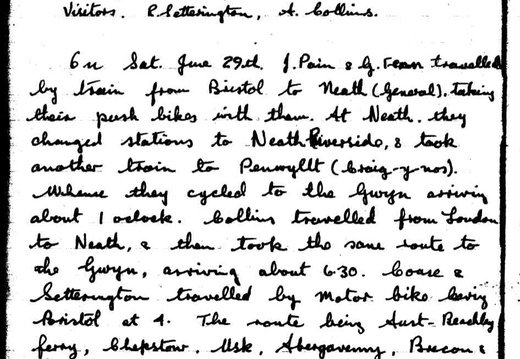 Visitors. R. Setterington, A. Collins.
On Sat. June 29th. J. Pain & G. Fenn travelled
by train from Bristol to Neath (General). taking
their push bikes with them. At Neath. they
changed stations to Neath Riverside, & took
another train to Penwyllt (Craig-y-nos).
Whence they cycled to the Gwyn arriving
about 1 oclock. Collins travelled from London
to Neath, & then took the same route to
the Gwyn, arriving about 6.30. Coase &
Setterington travelled by motor bike leaving
Bristol at 4. The route being Aust-Beachley
ferry, Chepstow. Usk, Abergavenny, Brecon &